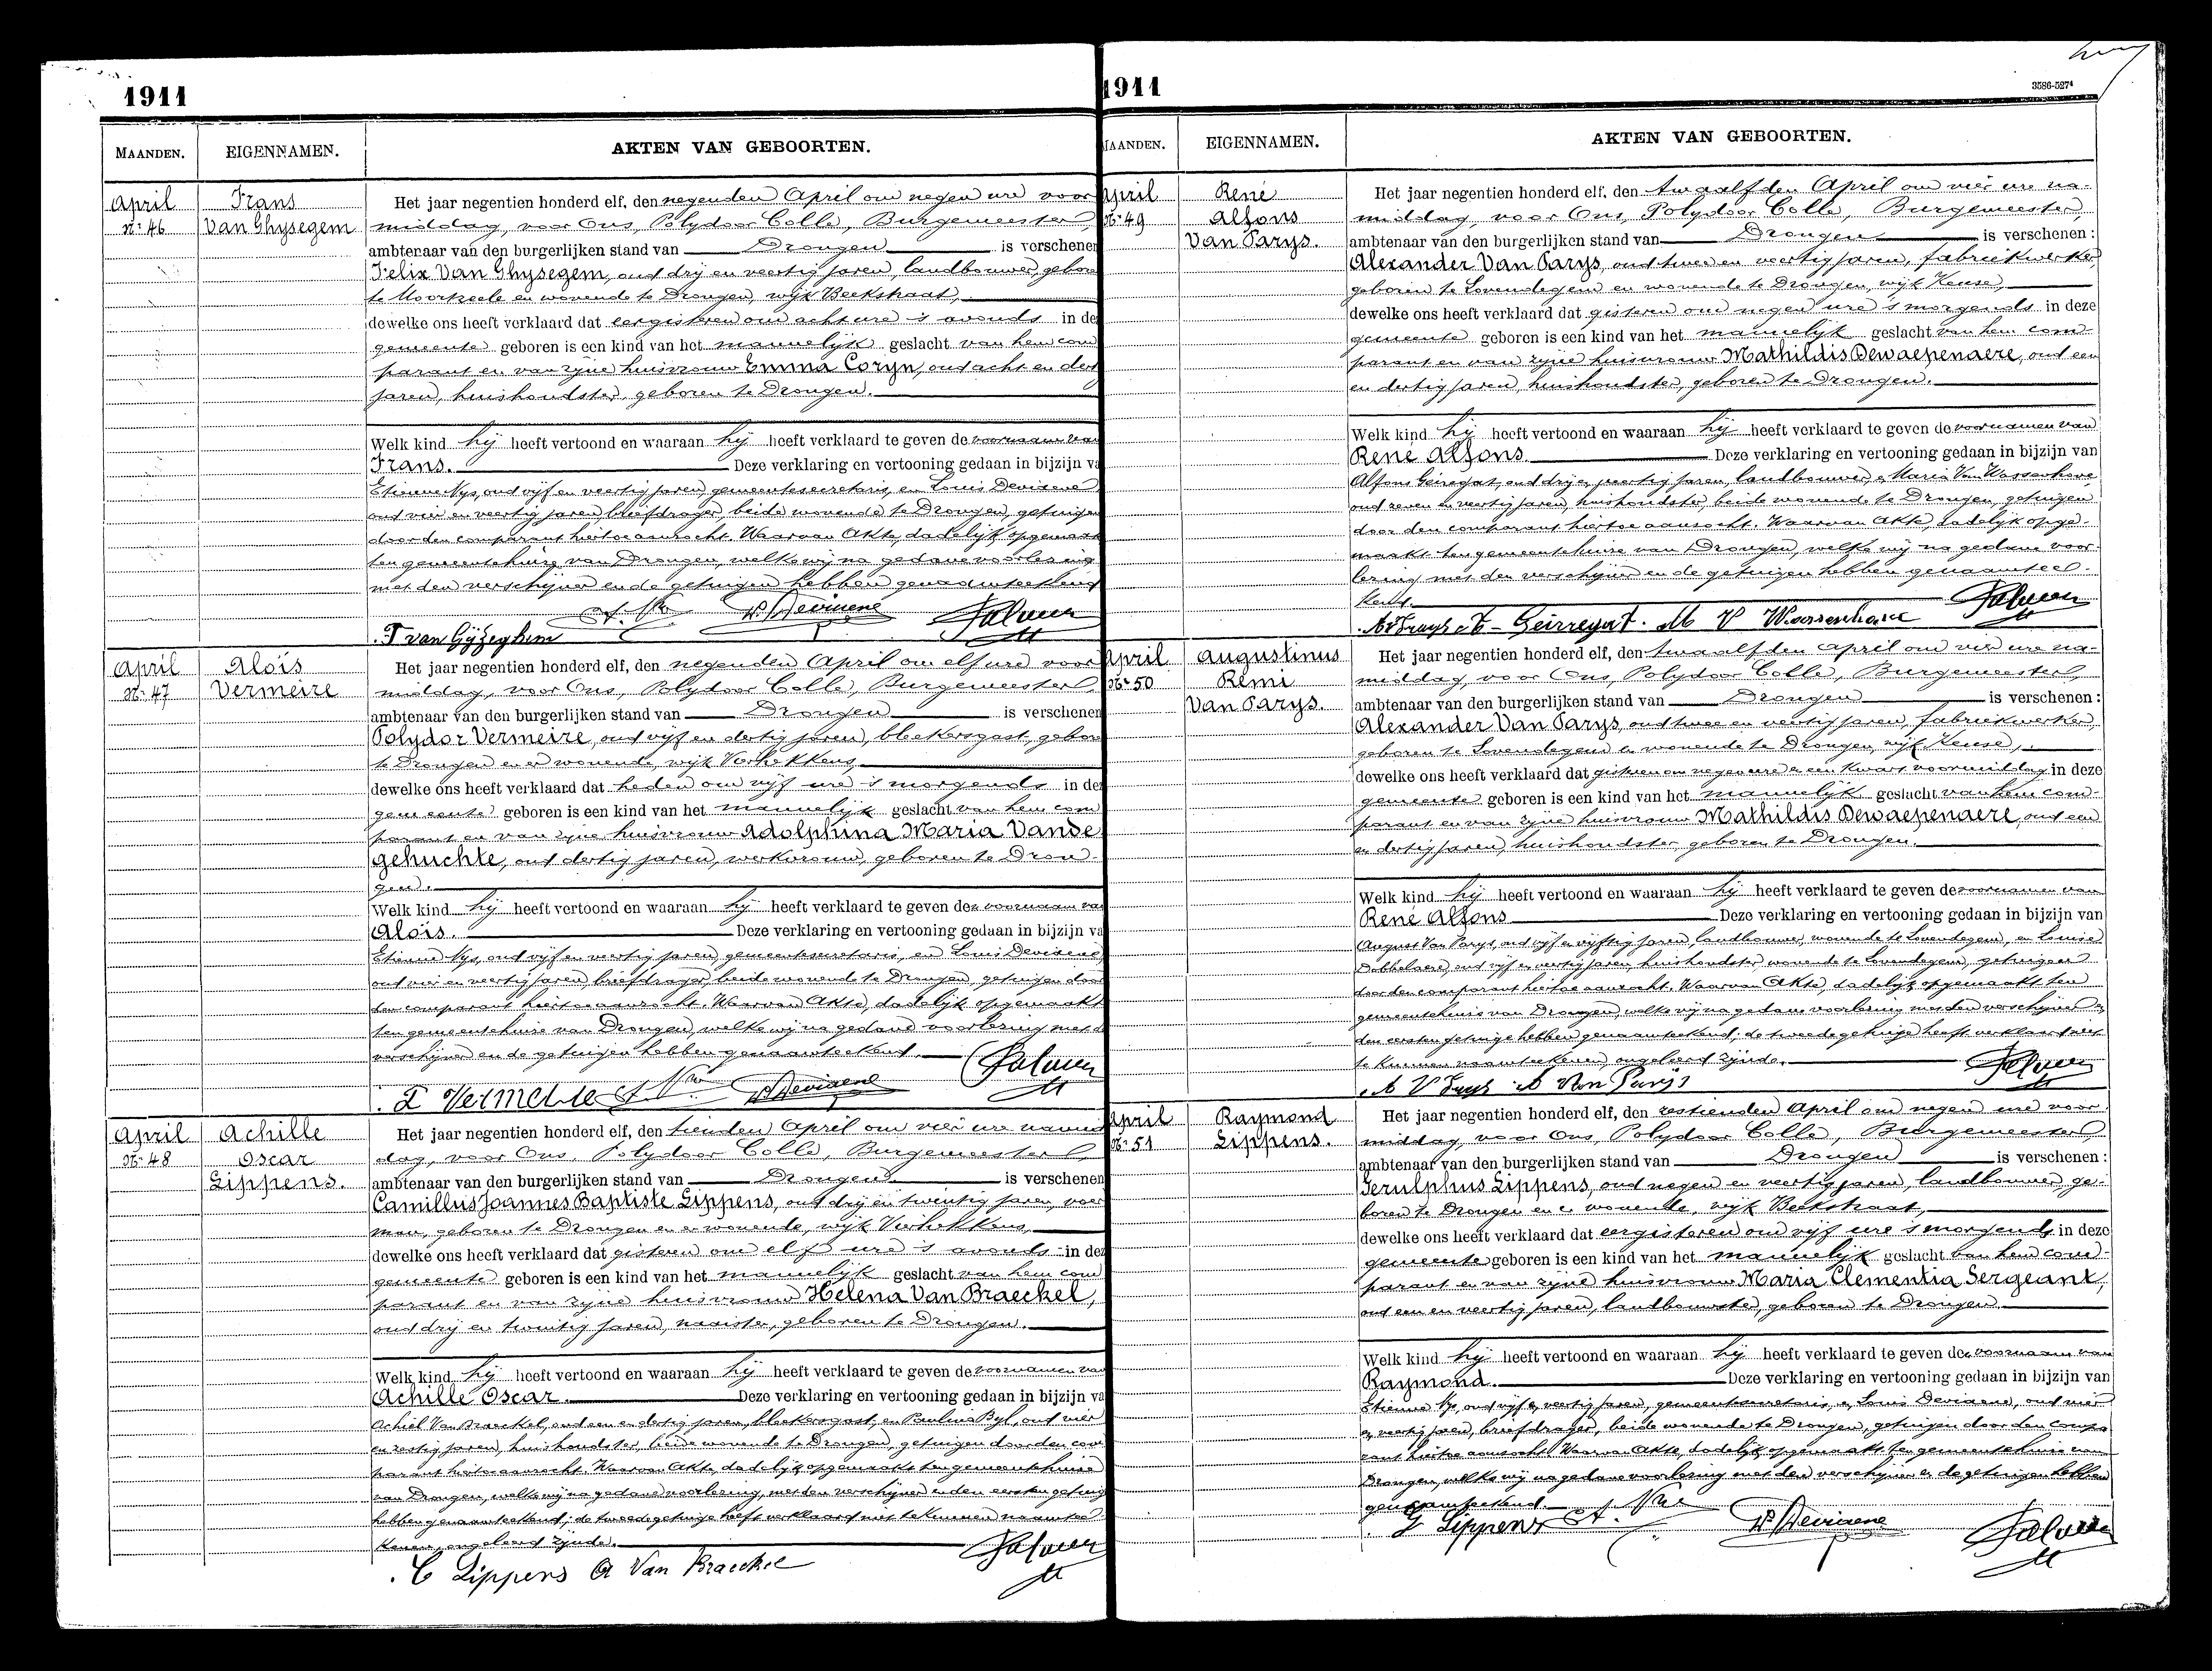 1911
MAANDEN.
EIGENNAMEN.
AKTEN VAN GEBOORTEN.
April
N: 46
Frans
Van Ghysegem
Het jaar negentien honderd elf, den negenden April om negen ure voor
middag, voor Ons, Polydoor Colle, Burgemeester,
ambtenaar van den burgerlijken stand van Drongen is verschenen
Felix Van Ghysegem, oud drij en veertig jaren, landbouwer, gebore
te Moortzeele en wonende te Drongen, wijk Beekstraat,
dewelke ons heeft verklaard dat eergisteren om acht ure 's avonds in de
gemeente geboren is een kind van het mannelijk geslacht van hem com
parant en van zijne huisvrouw Emma Coryn, oud acht en dert
jaren, huishoudster, geboren te Drongen.
Welk kind hij heeft vertoond en waaraan hij heeft verklaard te geven de voornaam van
Frans. Deze verklaring en vertooning gedaan in bijzijn va
Etienne Nys, oud vijf en veertig jaren, gemeentesecretaris, en Louis Devisene
oud vier en veertig jaren, briefdrager, beide wonende te Drongen, getuigen
door den comparant hiertoe aanzocht. Waarvan Akte, dadelijk opgemaakt
ten gemeentehuize van Drongen, welke wij na gedane voorlezing
met den verschijner en de getuigen hebben genaamteekend
F van Gijzeghem
April
N: 47
Aloïs
Vermeire
Het jaar negentien honderd elf, den negenden April om elf ure voor
middag, voor Ons, Polydoor Colle, Burgemeester,
ambtenaar van den burgerlijken stand van Drongen is verschenen
Polydor Vermeire, oud vijf en dertig jaren, bleekersgast, gebore
te Drongen en er wonende, wijk Verhekkens
dewelke ons heeft verklaard dat heden om vijf ure 's morgends in de
gemeente geboren is een kind van het mannelijk geslacht van hem com
parant en van zijne huisvrouw Adolphina Maria Vande
gehuchte, oud dertig jaren, werkvrouw, geboren te Dron-
gen.
Welk kind hij heeft vertoond en waaraan hij heeft verklaard te geven den voornaam va
Aloïs. Deze verklaring en vertooning gedaan in bijzijn va
Etienne Nys, oud vijf en veertig jaren, gemeentesecretaris, en Louis Devisene
oud vier en veertig jaren, briefdrager, beide wonende te Drongen, getuigen door
den comparant hiertoe aanzocht. Waarvan Akte, dadelijk opgemaakt
ten gemeentehuize van Drongen, welke wij na gedane voorlezing met d
verschijner en de getuigen hebben genaamteekend.
P Vermeire
April
N: 48
Achille
Oscar
Lippens.
Het jaar negentien honderd elf, den tienden April om vier ure namid
dag, voor Ons, Polydoor Colle, Burgemeester,
ambtenaar van den burgerlijken stand van Drongen is verschenen
Camillus Joannes Baptiste Lippens, oud drij en twintig jaren, voer
man, geboren te Drongen en er wonende, wijk Verhekkens,
dewelke ons heeft verklaard dat gisteren om elf ure 's avonds in de
gemeente geboren is een kind van het mannelijk geslacht van hem com
parant en van zijne huisvrouw Helena Van Braeckel,
oud drij en twintig jaren, naaister, geboren te Drongen.
Welk kind hij heeft vertoond en waaraan hij heeft verklaard te geven de voornamen van
Achille Oscar. Deze verklaring en vertooning gedaan in bijzijn va
Achiel Van Braeckel, oud een en dertig jaren, bleekersgast, en Paulina Byl, oud vier
en zestig jaren, huishoudster, beide wonende te Drongen, getuigen door den com
parant hiertoe aanzocht. Waarvan Akte, dadelijk opgemaakt ten gemeentehuize
van Drongen, welke wij na gedane voorlezing, met den verschijner en den eersten getuige
hebben genaamteekend; de tweede getuige heeft verklaard niet te kunnen naamtee
kenen, ongeleerd zijnde.
C Lippens A Van Braeckel
1911
3586-527⁴
MAANDEN.
EIGENNAMEN.
AKTEN VAN GEBOORTEN.
April
N: 49
René
Alfons
Van Parys.
Het jaar negentien honderd elf, den twaalfden April om vier ure na-
middag, voor Ons, Polydoor Colle, Burgemeester,
ambtenaar van den burgerlijken stand van Drongen is verschenen:
Alexander Van Parys, oud twee en veertig jaren, fabriekwerker,
geboren te Lovendegem en wonende te Drongen, wijk Keuse,
dewelke ons heeft verklaard dat gisteren om negen ure 's morgends in deze
gemeente geboren is een kind van het mannelijk geslacht van hem com-
parant en van zijne huisvrouw Mathildis Dewaepenaere, oud een
en dertig jaren, huishoudster, geboren te Drongen.
Welk kind hij heeft vertoond en waaraan hij heeft verklaard te geven de voornamen van
René Alfons. Deze verklaring en vertooning gedaan in bijzijn van
Alfons Geiregat, oud drij en veertig jaren, landbouwer, en Maria Van Wassenhove
oud zeven en veertig jaren, huishoudster, beide wonende te Drongen, getuigen
door den comparant hiertoe aanzocht. Waarvan Akte, dadelijk opge-
maakt ten gemeentehuize van Drongen, welke wij na gedane voor-
lezing met den verschijner en de getuigen hebben genaamtee-
kend.
A V Parys A - Geirregat. M V Wassenhove
April
N: 50
Augustinus
Remi
Van Parys.
Het jaar negentien honderd elf, den twaalfden April om vier ure na-
middag, voor Ons, Polydoor Colle, Burgemeester,
ambtenaar van den burgerlijken stand van Drongen is verschenen:
Alexander Van Parys, oud twee en veertig jaren, fabriekwerker,
geboren te Lovendegem en wonende te Drongen, wijk Keuse,
dewelke ons heeft verklaard dat gisteren om negen ure en een kwart voormiddag in deze
gemeente geboren is een kind van het mannelijk geslacht van hem com-
parant en van zijne huisvrouw Mathildis Dewaepenaere, oud een
en dertig jaren, huishoudster, geboren te Drongen.
Welk kind hij heeft vertoond en waaraan hij heeft verklaard te geven de voornamen van
René Alfons Deze verklaring en vertooning gedaan in bijzijn van
August Van Parys, oud vijf en vijftig jaren, landbouwer, wonende te Lovendegem, en Louise
Dobbelaere, oud vijf en veertig jaren, huishoudster, wonende te Lovendegem, getuigen
door den comparant hiertoe aanzocht. Waarvan Akte, dadelijk opgemaakt ten
gemeentehuis van Drongen, welke wij na gedane voorlezing met den verschijner en
den eersten getuige hebben genaamteekend; de tweede getuige heeft verklaard niet
te kunnen naamteekenen, ongeleerd zijnde.
A V Parys A Van Parijs
April
N: 51
Raymond
Lippens.
Het jaar negentien honderd elf, den zestienden April om negen ure voor
middag, voor Ons, Polydoor Colle, Burgemeester,
ambtenaar van den burgerlijken stand van Drongen is verschenen:
Gerulphus Lippens, oud negen en veertig jaren, landbouwer, ge-
boren te Drongen en er wonende, wijk Beekstraat,
dewelke ons heeft verklaard dat eergisteren om vijf ure 's morgends in deze
gemeente geboren is een kind van het mannelijk geslacht van hem com-
parant en van zijne huisvrouw Maria Clementia Sergeant,
oud een en veertig jaren, landbouwster, geboren te Drongen.
Welk kind hij heeft vertoond en waaraan hij heeft verklaard te geven den voornaam van
Raymond. Deze verklaring en vertooning gedaan in bijzijn van
Etienne Nys, oud vijf en veertig jaren, gemeentesecretaris, en Louis Devisene, oud vier
en veertig jaren, briefdrager, beide wonende te Drongen, getuigen door den compa
rant hiertoe aanzocht. Waarvan Akte, dadelijk opgemaakt ten gemeentehuis van
Drongen, welke wij na gedane voorlezing met den verschijner en de getuigen hebben
genaamteekend.
G Lippens